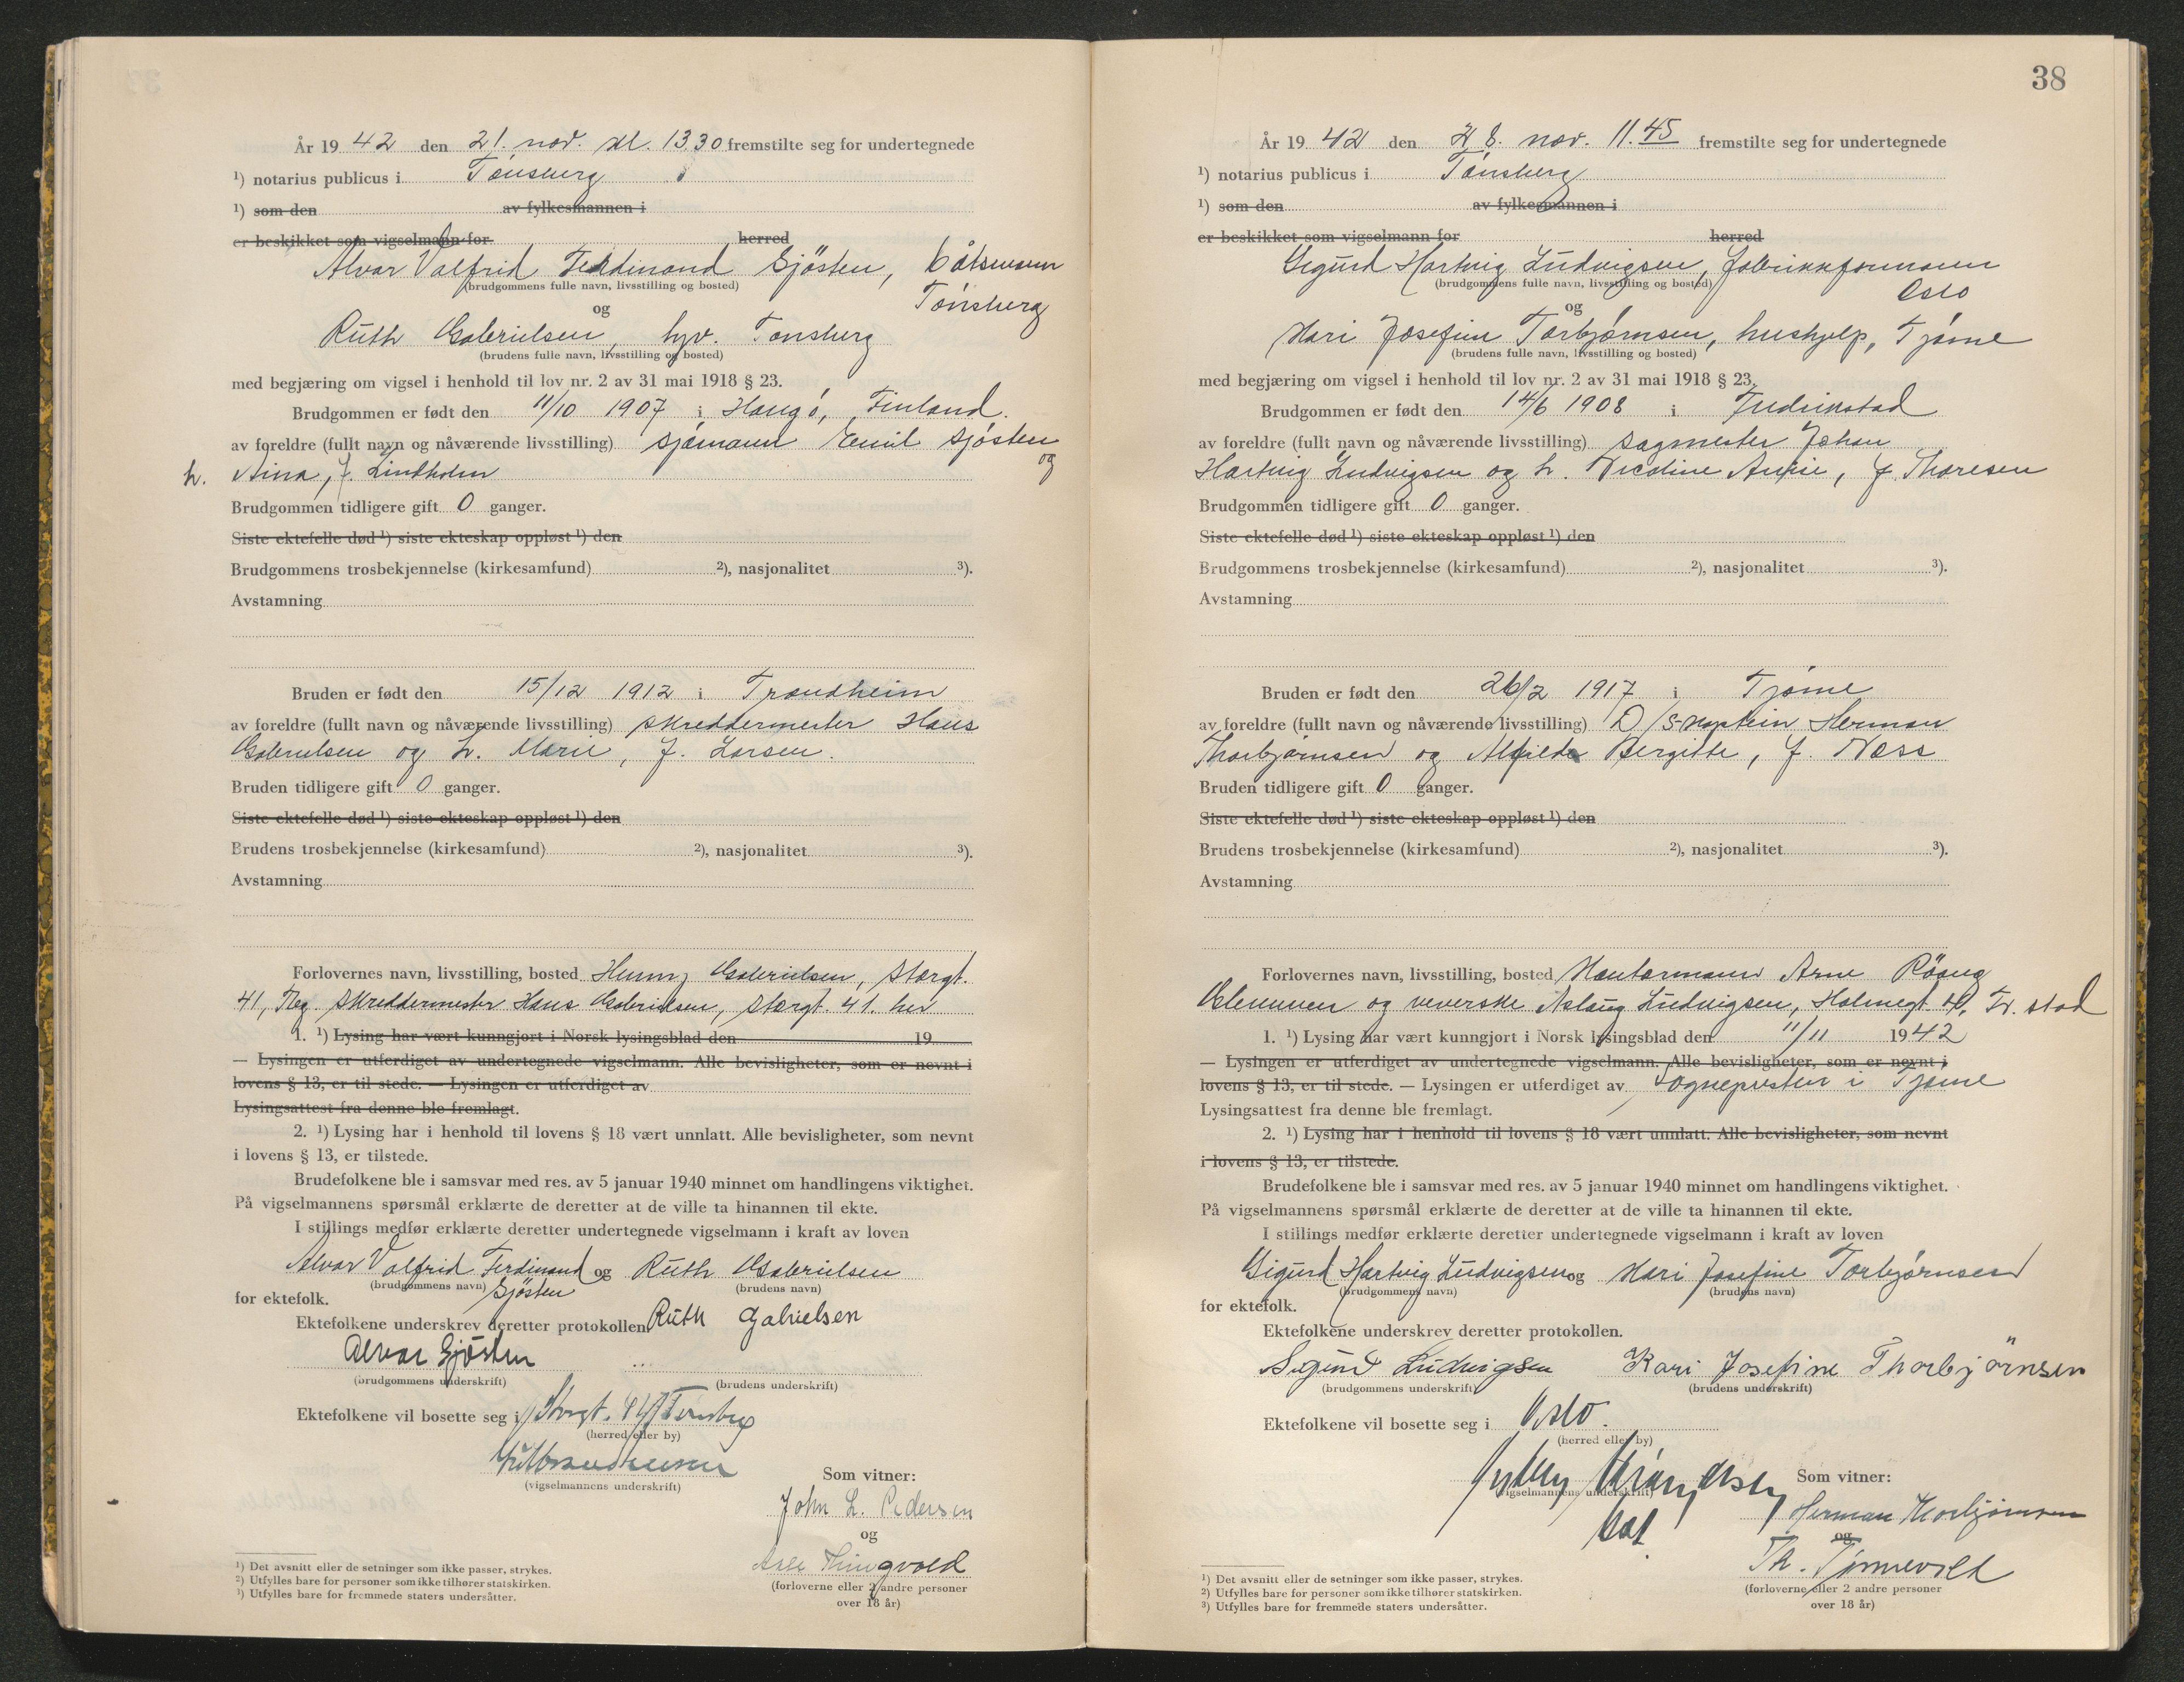 År 19 42 den 21. nov. kl. 13.30 fremstilte seg for undertegnede
¹) notarius publicus i Tønsberg
¹) som den av fylkesmannen i
er beskikket som vigselmann for herred
Alvar Valfrid Ferdinand Sjösten, båtsmann
(brudgommens fulle navn, livsstilling og bosted)
Tønsberg
og
Ruth Gabrielsen, hjv. Tønsberg
(brudens fulle navn, livsstilling og bosted)
med begjæring om vigsel i henhold til lov nr. 2 av 31 mai 1918 § 23.
Brudgommen er født den 11/10 1907 i Hangö, Finland.
av foreldre (fullt navn og nåværende livsstilling) sjømann Emil Sjösten
og
h. Aina, f. Lindholm
Brudgommen tidligere gift 0 ganger.
Siste ektefelle død ¹) siste ekteskap oppløst ¹) den
Brudgommens trosbekjennelse (kirkesamfund) ²), nasjonalitet ³).
Avstamning
Bruden er født den 15/12 1912 i Trondheim
av foreldre (fullt navn og nåværende livsstilling) skreddermester Hans
Gabrielsen og h. Marie, f. Larsen.
Bruden tidligere gift 0 ganger.
Siste ektefelle død ¹) siste ekteskap oppløst ¹) den
Brudens trosbekjennelse (kirkesamfund) ²), nasjonalitet ³).
Avstamning
Forlovernes navn, livsstilling, bosted Gabrielsen, Storgt.
41, Tbg. skreddermester Hans Gabrielsen, Storgt. 41. her
1. ¹) Lysing har vært kunngjort i Norsk lysingsblad den 19
— Lysingen er utferdiget av undertegnede vigselmann. Alle bevisligheter, som er nevnt i
lovens § 13, er til stede. — Lysingen er utferdiget av
Lysingsattest fra denne ble fremlagt.
2. ¹) Lysing har i henhold til lovens § 18 vært unnlatt. Alle bevisligheter, som nevnt
i lovens § 13, er tilstede.
Brudefolkene ble i samsvar med res. av 5 januar 1940 minnet om handlingens viktighet.
På vigselmannens spørsmål erklærte de deretter at de ville ta hinannen til ekte.
I stillings medfør erklærte deretter undertegnede vigselmann i kraft av loven
Alvar Valfrid Ferdinand og Ruth Gabrielsen
(brudgommens navn) Sjösten (brudens navn)
for ektefolk.
Ektefolkene underskrev deretter protokollen. Ruth Gabrielsen
Alvar Sjösten
(brudgommens underskrift) (brudens underskrift)
Ektefolkene vil bosette seg i Storgt. 41 Tønsberg
(herred eller by)
(vigselmannens underskrift)
Som vitner:
John L. Pedersen
og
Thingvold
(forloverne eller 2 andre personer
over 18 år)
¹) Det avsnitt eller de setninger som ikke passer, strykes.
²) Utfylles bare for personer som ikke tilhører statskirken.
³) Utfylles bare for fremmede staters undersåtter.
38
År 19 42 den 28. nov. 11.45 fremstilte seg for undertegnede
¹) notarius publicus i Tønsberg
¹) som den av fylkesmannen i
er beskikket som vigselmann for herred
Sigurd Hartvig Ludvigsen, fabrikkformann
(brudgommens fulle navn, livsstilling og bosted)
Oslo
og
Kari Josefine Torbjørnsen, hushjelp, Tjøme
(brudens fulle navn, livsstilling og bosted)
med begjæring om vigsel i henhold til lov nr. 2 av 31 mai 1918 § 23.
Brudgommen er født den 14/6 1908 i Fredrikstad
av foreldre (fullt navn og nåværende livsstilling) sagmester Johan
Hartvig Ludvigsen og h. Nicoline Amie, f. Thoresen
Brudgommen tidligere gift 0 ganger.
Siste ektefelle død ¹) siste ekteskap oppløst ¹) den
Brudgommens trosbekjennelse (kirkesamfund) ²), nasjonalitet ³).
Avstamning
Bruden er født den 26/2 1917 i Tjøme
av foreldre (fullt navn og nåværende livsstilling) D/S-kaptein Herman
Thorbjørnsen og Alfilde Bergitte, f. Næss
Bruden tidligere gift 0 ganger.
Siste ektefelle død ¹) siste ekteskap oppløst ¹) den
Brudens trosbekjennelse (kirkesamfund) ²), nasjonalitet ³).
Avstamning
Forlovernes navn, livsstilling, bosted Kontormann Arne Röang
Glemmen og veverske Aslaug Ludvigsen, Holmegt. Fr. stad
1. ¹) Lysing har vært kunngjort i Norsk lysingsblad den 11/11 1942
— Lysingen er utferdiget av undertegnede vigselmann. Alle bevisligheter, som er nevnt i
lovens § 13, er til stede. — Lysingen er utferdiget av Sognepresten i Tjøme
Lysingsattest fra denne ble fremlagt.
2. ¹) Lysing har i henhold til lovens § 18 vært unnlatt. Alle bevisligheter, som nevnt
i lovens § 13, er tilstede.
Brudefolkene ble i samsvar med res. av 5 januar 1940 minnet om handlingens viktighet.
På vigselmannens spørsmål erklærte de deretter at de ville ta hinannen til ekte.
I stillings medfør erklærte deretter undertegnede vigselmann i kraft av loven
Sigurd Hartvig Ludvigsen og Kari Josefine Torbjørnsen
(brudgommens navn) (brudens navn)
for ektefolk.
Ektefolkene underskrev deretter protokollen.
Sigurd Ludvigsen Kari Josefine Thorbjörnsen
(brudgommens underskrift) (brudens underskrift)
Ektefolkene vil bosette seg i Oslo.
(herred eller by)
(vigselmannens underskrift)
Som vitner:
Herman Thorbjørnsen
og
Th. Tønnevold
(forloverne eller 2 andre personer
over 18 år)
¹) Det avsnitt eller de setninger som ikke passer, strykes.
²) Utfylles bare for personer som ikke tilhører statskirken.
³) Utfylles bare for fremmede staters undersåtter.